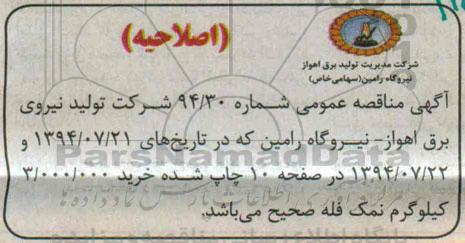 (اصلاحیه)
شرکت مدیریت تولید برق اهواز
نیروگاه رامین(سهامی خاص)
آگهی مناقصه عمومی شماره ۹۴/۳۰ شرکت تولید نیروی
برق اهواز- نیروگاه رامین که در تاریخ‌های ۱۳۹۴/۰۷/۲۱ و
۱۳۹۴/۰۷/۲۲ در صفحه ۱۰ چاپ شده خرید ۳/۰۰۰/۰۰۰
کیلوگرم نمک فله صحیح می‌باشد.
ParsNamadData